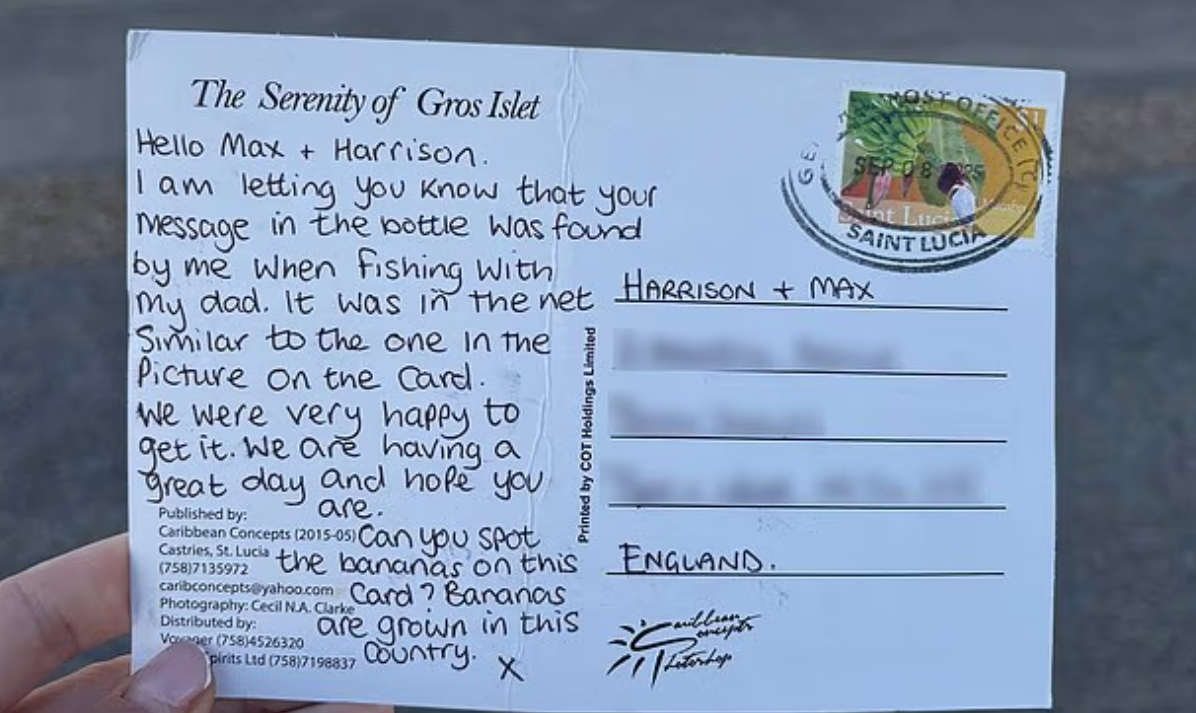 The Serenity of Gros Islet
Hello Max + Harrison.
I am letting you know that your
message in the bottle was found
by me when fishing with
my dad. It was in the net
Similar to the one in the
Picture on the card.
We were very happy to
get it. We are having a
great day and hope you
are.
Can you spot
the bananas on this
Card? Bananas
are grown in this
country. X
Published by:
Caribbean Concepts (2015-05)
Castries, St. Lucia
(758)7135972
caribconcepts@yahoo.com
Photography: Cecil N.A. Clarke
Distributed by:
Voyager (758)4526320
Spirits Ltd (758)7198837
Printed by COT Holdings Limited
POST OFFICE
SEP 08
Saint Lucia
SAINT LUCIA
HARRISON + MAX
ENGLAND.
Caribbean
Concepts
Photoshop